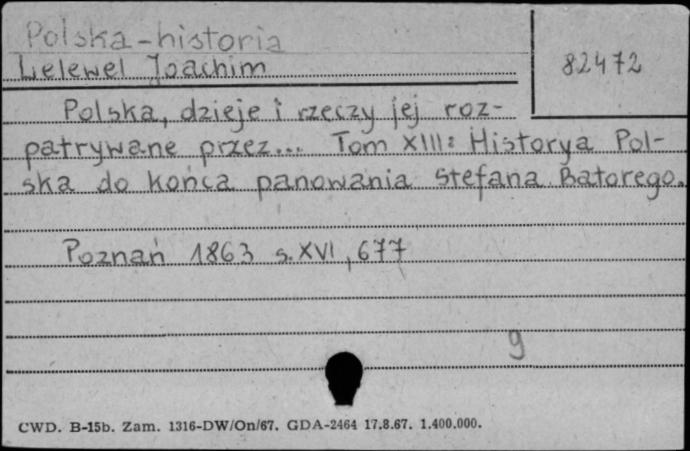 Polska-historia
Lelewel Joachim
82472
Polska, dzieje i rzeczy jej roz-
patrywane przez... Tom XIII: Historya Pol-
ska do końca panowania Stefana Batorego.
Poznań 1863 s. XVI, 677
9
CWD. B-15b. Zam. 1316-DW/On/67. GDA-2464 17.8.67. 1.400.000.